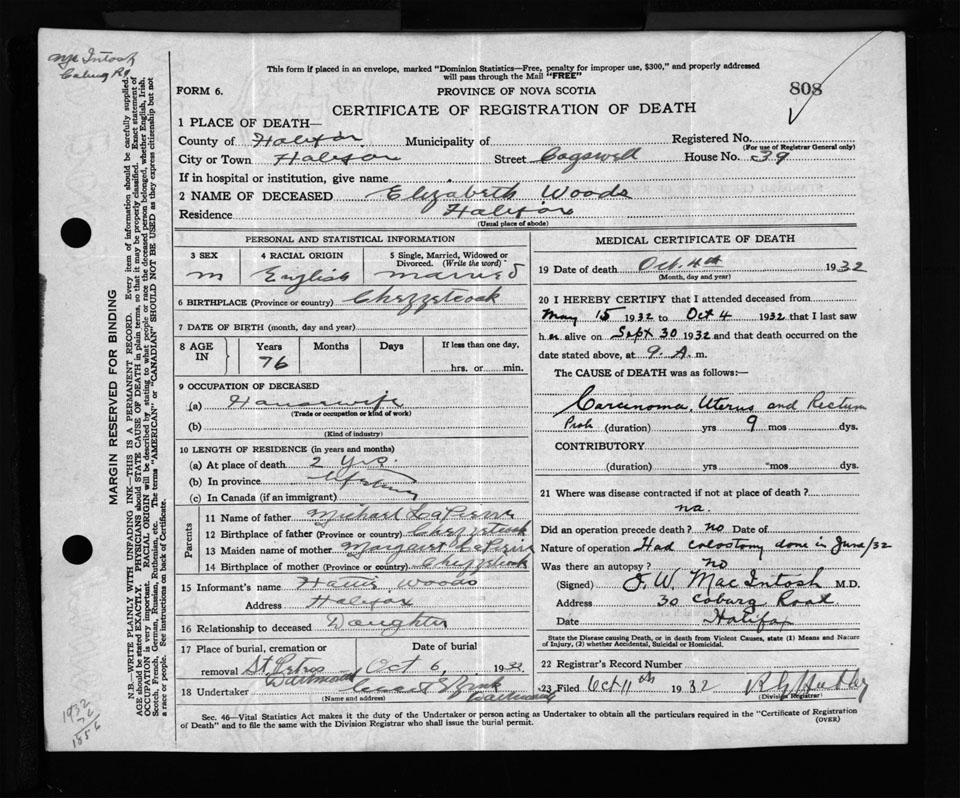 McIntosh
Coburg Rd
This form if placed in an envelope, marked "Dominion Statistics—Free, penalty for improper use, $300," and properly addressed
will pass through the Mail "FREE"
FORM 6.
PROVINCE OF NOVA SCOTIA
808
CERTIFICATE OF REGISTRATION OF DEATH
1 PLACE OF DEATH—
County of Halifax Municipality of Registered No.
(For use of Registrar General only)
City or Town Halifax Street Cogswell House No. 39
If in hospital or institution, give name
2 NAME OF DECEASED Elizabeth Woods
Residence Halifax
(Usual place of abode)
PERSONAL AND STATISTICAL INFORMATION
3 SEX 4 RACIAL ORIGIN 5 Single, Married, Widowed or
Divorced. (Write the word)
m English married
6 BIRTHPLACE (Province or country) Chezzetcook
7 DATE OF BIRTH (month, day and year)
8 AGE IN Years Months Days If less than one day,
76 hrs. or min.
9 OCCUPATION OF DECEASED
(a) Housewife
(Trade or occupation or kind of work)
(b)
(Kind of industry)
10 LENGTH OF RESIDENCE (in years and months)
(a) At place of death 2 yrs.
(b) In province Lifetime
(c) In Canada (if an immigrant)
Parents
11 Name of father Michael LaPierre
12 Birthplace of father (Province or country) Chezzetcook
13 Maiden name of mother Margaret LaPierre
14 Birthplace of mother (Province or country) Chezzetcook
15 Informant's name Hattie Woods
Address Halifax
16 Relationship to deceased Daughter
17 Place of burial, cremation or Date of burial
removal St Peters Oct 6 1932
Dartmouth
18 Undertaker
(Name and address)
MEDICAL CERTIFICATE OF DEATH
19 Date of death Oct. 4th 1932
(Month, day and year)
20 I HEREBY CERTIFY that I attended deceased from
May 15 1932 to Oct 4 1932 that I last saw
h er alive on Sept 30 1932 and that death occurred on the
date stated above, at 9. A. m.
The CAUSE of DEATH was as follows:—
Carcinoma, Uterus and Rectum
Prob. (duration) yrs 9 mos dys.
CONTRIBUTORY
(duration) yrs mos dys.
21 Where was disease contracted if not at place of death?
na.
Did an operation precede death? no Date of
Nature of operation Had colostomy done in June/32
Was there an autopsy? no
(Signed) J. W. MacIntosh M.D.
Address 30 Coburg Road
Date Halifax
State the Disease causing Death, or in death from Violent Causes, state (1) Means and Nature
of Injury, (2) whether Accidental, Suicidal or Homicidal.
22 Registrar's Record Number
23 Filed Oct 11th 1932
(Division Registrar)
Sec. 46—Vital Statistics Act makes it the duty of the Undertaker or person acting as Undertaker to obtain all the particulars required in the "Certificate of Registration
of Death" and to file the same with the Division Registrar who shall issue the burial permit.
(OVER)
MARGIN RESERVED FOR BINDING
N.B. WRITE PLAINLY WITH UNFADING INK—THIS IS A PERMANENT RECORD. Every item of information should be carefully supplied.
AGE should be stated EXACTLY. PHYSICIANS should STATE CAUSE OF DEATH in plain terms, so that it may be properly classified. Exact statement of
OCCUPATION is very important. RACIAL ORIGIN will be described by stating to what people or race the deceased person belonged, whether English, Irish,
Scotch, French, German, Russian, Ruthenian, etc. The terms "AMERICAN" or "CANADIAN" SHOULD NOT BE USED as they express citizenship but not
a race or people. See instructions on back of Certificate.
1932
76
1856